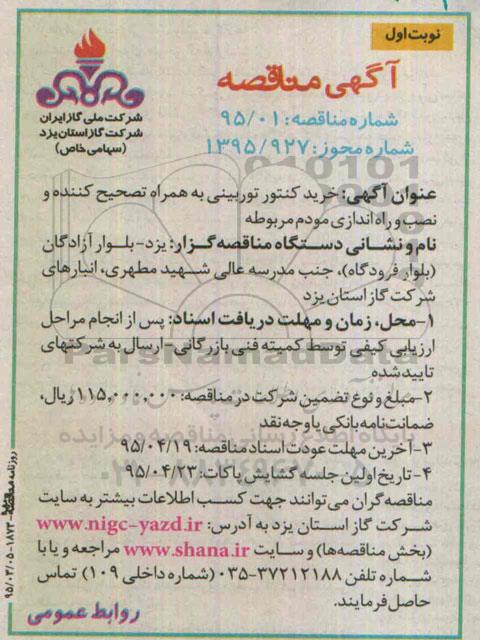 نوبت اول
آگهی مناقصه
شرکت ملی گاز ایران
شرکت گاز استان یزد
(سهامی خاص)
شماره مناقصه: ۹۵/۰۱
شماره مجوز: ۱۳۹۵/۹۲۷
عنوان آگهی: خرید کنتور توربینی به همراه تصحیح کننده و
نصب و راه اندازی مودم مربوطه
نام و نشانی دستگاه مناقصه گزار: یزد- بلوار آزادگان
(بلوار فرودگاه)، جنب مدرسه عالی شهید مطهری، انبارهای
شرکت گاز استان یزد
۱-محل، زمان و مهلت دریافت اسناد: پس از انجام مراحل
ارزیابی کیفی توسط کمیته فنی بازرگانی-ارسال به شرکتهای
تایید شده
۲-مبلغ و نوع تضمین شرکت در مناقصه: ۱۱۵,۰۰۰,۰۰۰ ریال،
ضمانت نامه بانکی یا وجه نقد
۳-آخرین مهلت عودت اسناد مناقصه: ۹۵/۰۴/۱۹
۴-تاریخ اولین جلسه گشایش پاکات: ۹۵/۰۴/۲۳
مناقصه گران می توانند جهت کسب اطلاعات بیشتر به سایت
شرکت گاز استان یزد به آدرس: www.nigc-yazd.ir
(بخش مناقصه ها) و سایت www.shana.ir مراجعه و یا با
شماره تلفن ۳۷۲۱۲۱۸۸-۰۳۵ (شماره داخلی ۱۰۹) تماس
حاصل فرمایند.
روابط عمومی
روزنامه مناقصه ۱۸۷۳-۹۵/۰۳/۰۵
ParsNamadData
پایگاه اطلاع رسانی مناقصه و مزایده